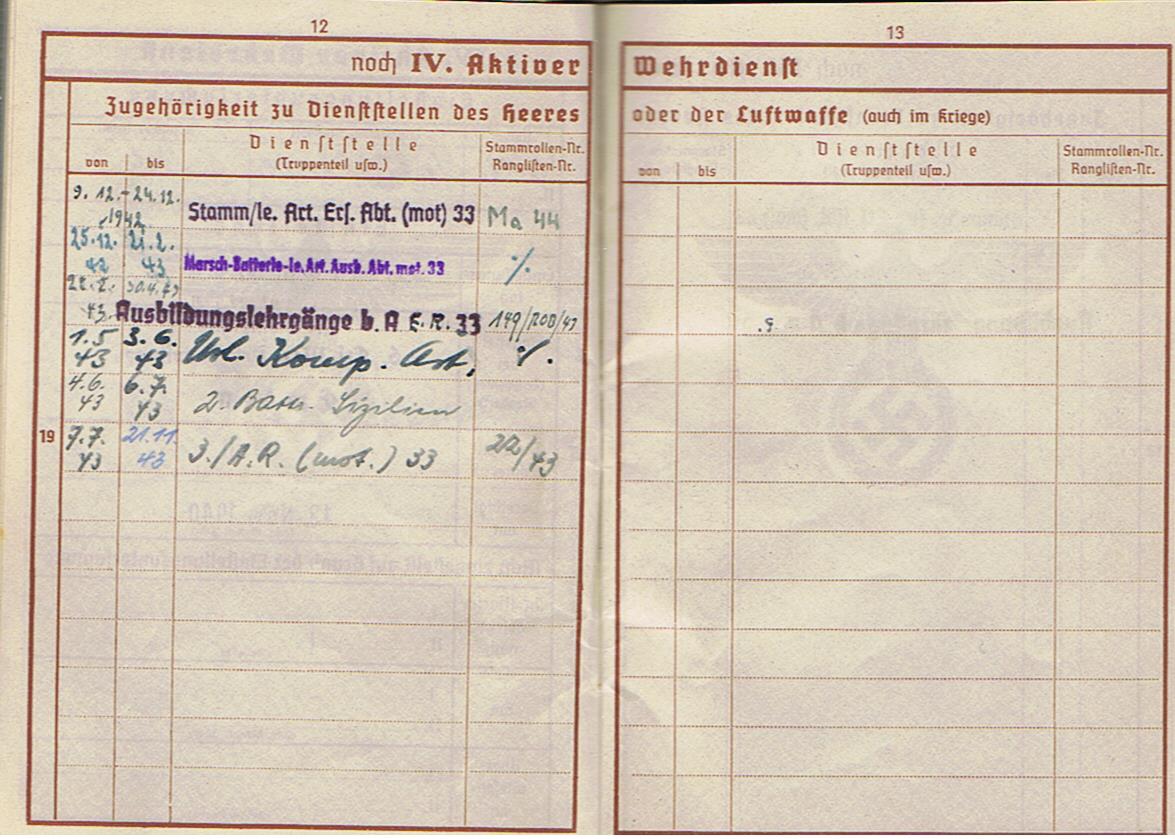 12
noch IV. Aktiver
Zugehörigkeit zu Dienststellen des Heeres
von bis Dienststelle (Truppenteil usw.) Stammrollen-Nr. Ranglisten-Nr.
9. 12. - 24.12. 1942 Stamm/le. Art. Ers. Abt. (mot) 33 Ma 44
25.12. 42 21.2. 43 Marsch-Batterie-le. Art. Ausb. Abt. mot. 33 ./.
22.2. 43 30.4.43 Ausbildungslehrgänge b. A.E.R. 33 149/200/43
1.5 43 3.6. 43 Url. Komp. Art. ./.
4.6. 43 6.7. 43 2. Battr. Sizilien
19 7.7. 43 21.11. 43 3./A.R. (mot.) 33 22/43
13
Wehrdienst
oder der Luftwaffe (auch im Kriege)
von bis Dienststelle (Truppenteil usw.) Stammrollen-Nr. Ranglisten-Nr.